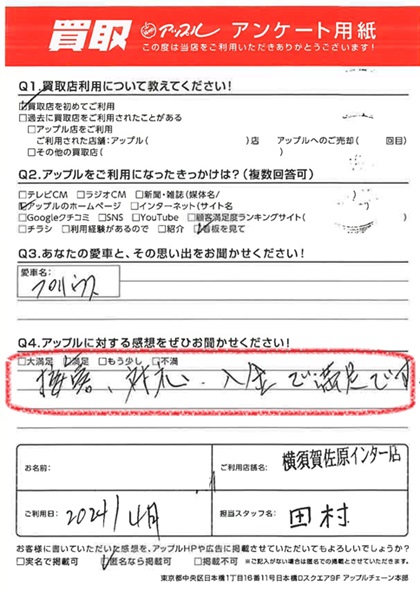 買取 アップル アンケート用紙
この度は当店をご利用いただきありがとうございます!
Q1.買取店利用について教えてください!
□買取店を初めてご利用
□過去に買取店をご利用されたことがある
□アップル店をご利用
ご利用された店舗:アップル( )店 アップルへのご売却( 回目)
□その他の買取店( )
Q2.アップルをご利用になったきっかけは?(複数回答可)
□テレビCM □ラジオCM □新聞・雑誌(媒体名/
□アップルのホームページ □インターネット(サイト名
□Googleクチコミ □SNS □YouTube □顧客満足度ランキングサイト(
□チラシ □利用経験があるので □紹介 □看板を見て
Q3.あなたの愛車と、その思い出をお聞かせください!
愛車名:
プリウス
Q4.アップルに対する感想をぜひお聞かせください!
□大満足 □満足 □もう少し □不満
接客、対応、入金で満足です
お名前:
ご利用店舗名: 横須賀佐原インター店
ご利用日: 2024/4月
担当スタッフ名: 田村
お客様に書いていただいた感想を、アップルHPや広告に掲載させていただいてもよろしいでしょうか?
□実名で掲載可 □匿名なら掲載可 □掲載不可 ※ご記入がない場合は匿名での掲載とさせていただきます。
東京都中央区日本橋1丁目16番11号日本橋Dスクエア9F アップルチェーン本部